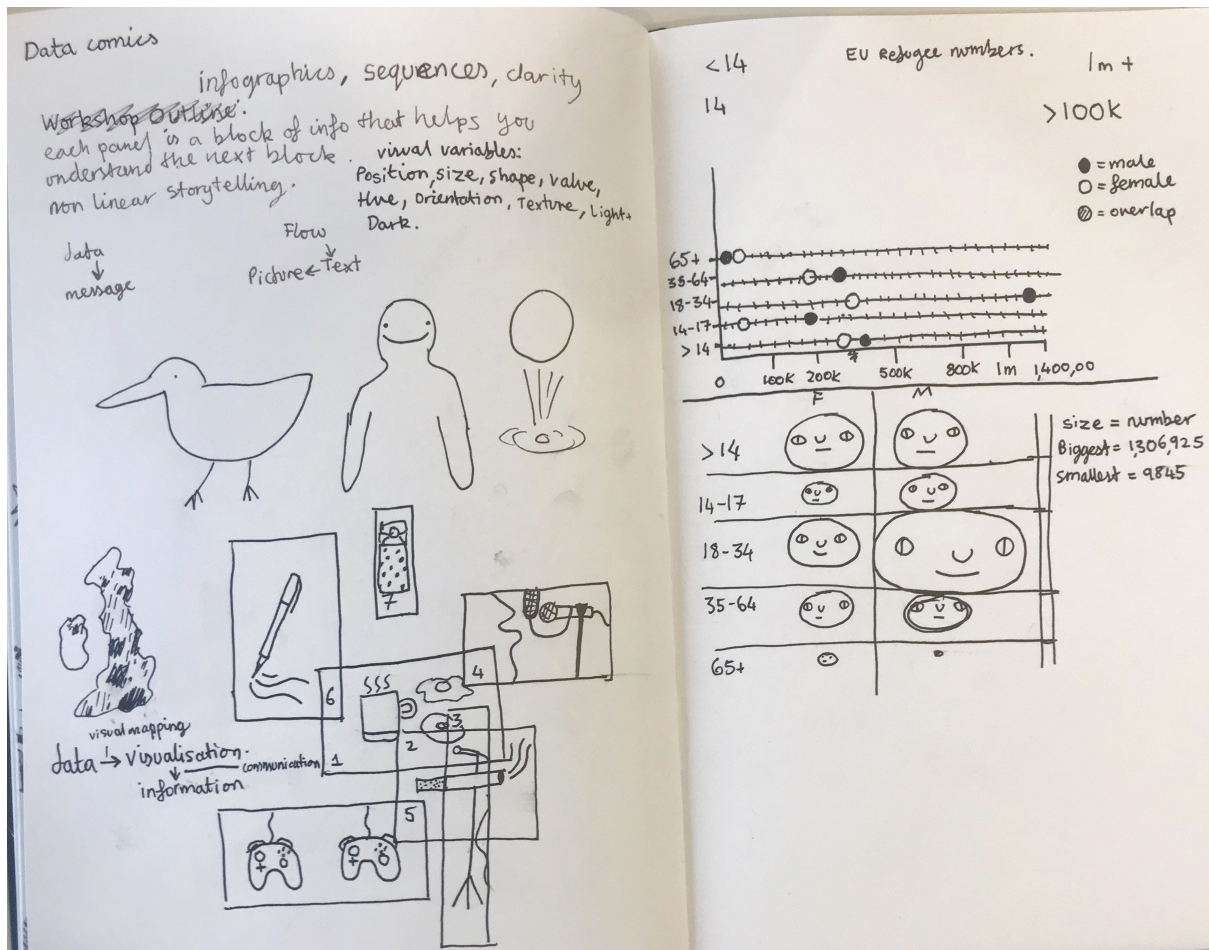 Data comics
infographics, sequences, clarity
Workshop Outline:
each panel is a block of info that helps you
understand the next block.
non linear storytelling.
visual variables:
Position, size, shape, value,
Hue, Orientation, Texture, Light+
Dark.
data
↓
message
Flow
↓
Picture ← Text
7
6
4
3
2
1
5
visual mapping
data → visualisation.
↓ communication
information
EU Refugee numbers.
<14
1m +
14
>100K
● = male
○ = female
= overlap
65+
35-64
18-34
14-17
>14
0 100K 200K * 500K 800K 1m 1,400,00
F M
>14
14-17
18-34
35-64
65+
size = number
Biggest = 1,306,925
smallest = 9845